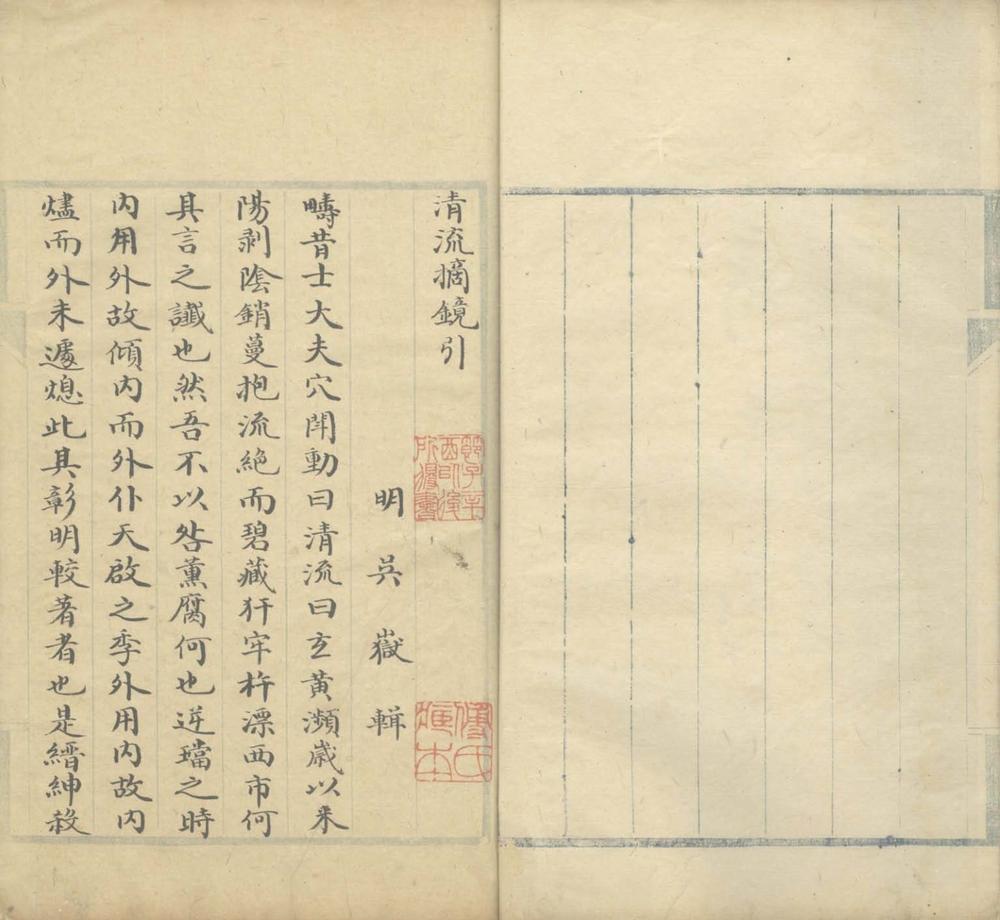 清流摘鏡引
明吳嶽輯
疇昔士大夫穴鬥動曰清流曰玄黃瀕歲以来
陽剥陰銷蔓抱流絶而碧藏犴牢杵漂西市何
其言之讖也然吾不以咎薰腐何也逆璫之時
内用外故傾内而外仆天啟之季外用内故内
燼而外未遽熄此其彰明較著者也是縉紳殺
傅氏